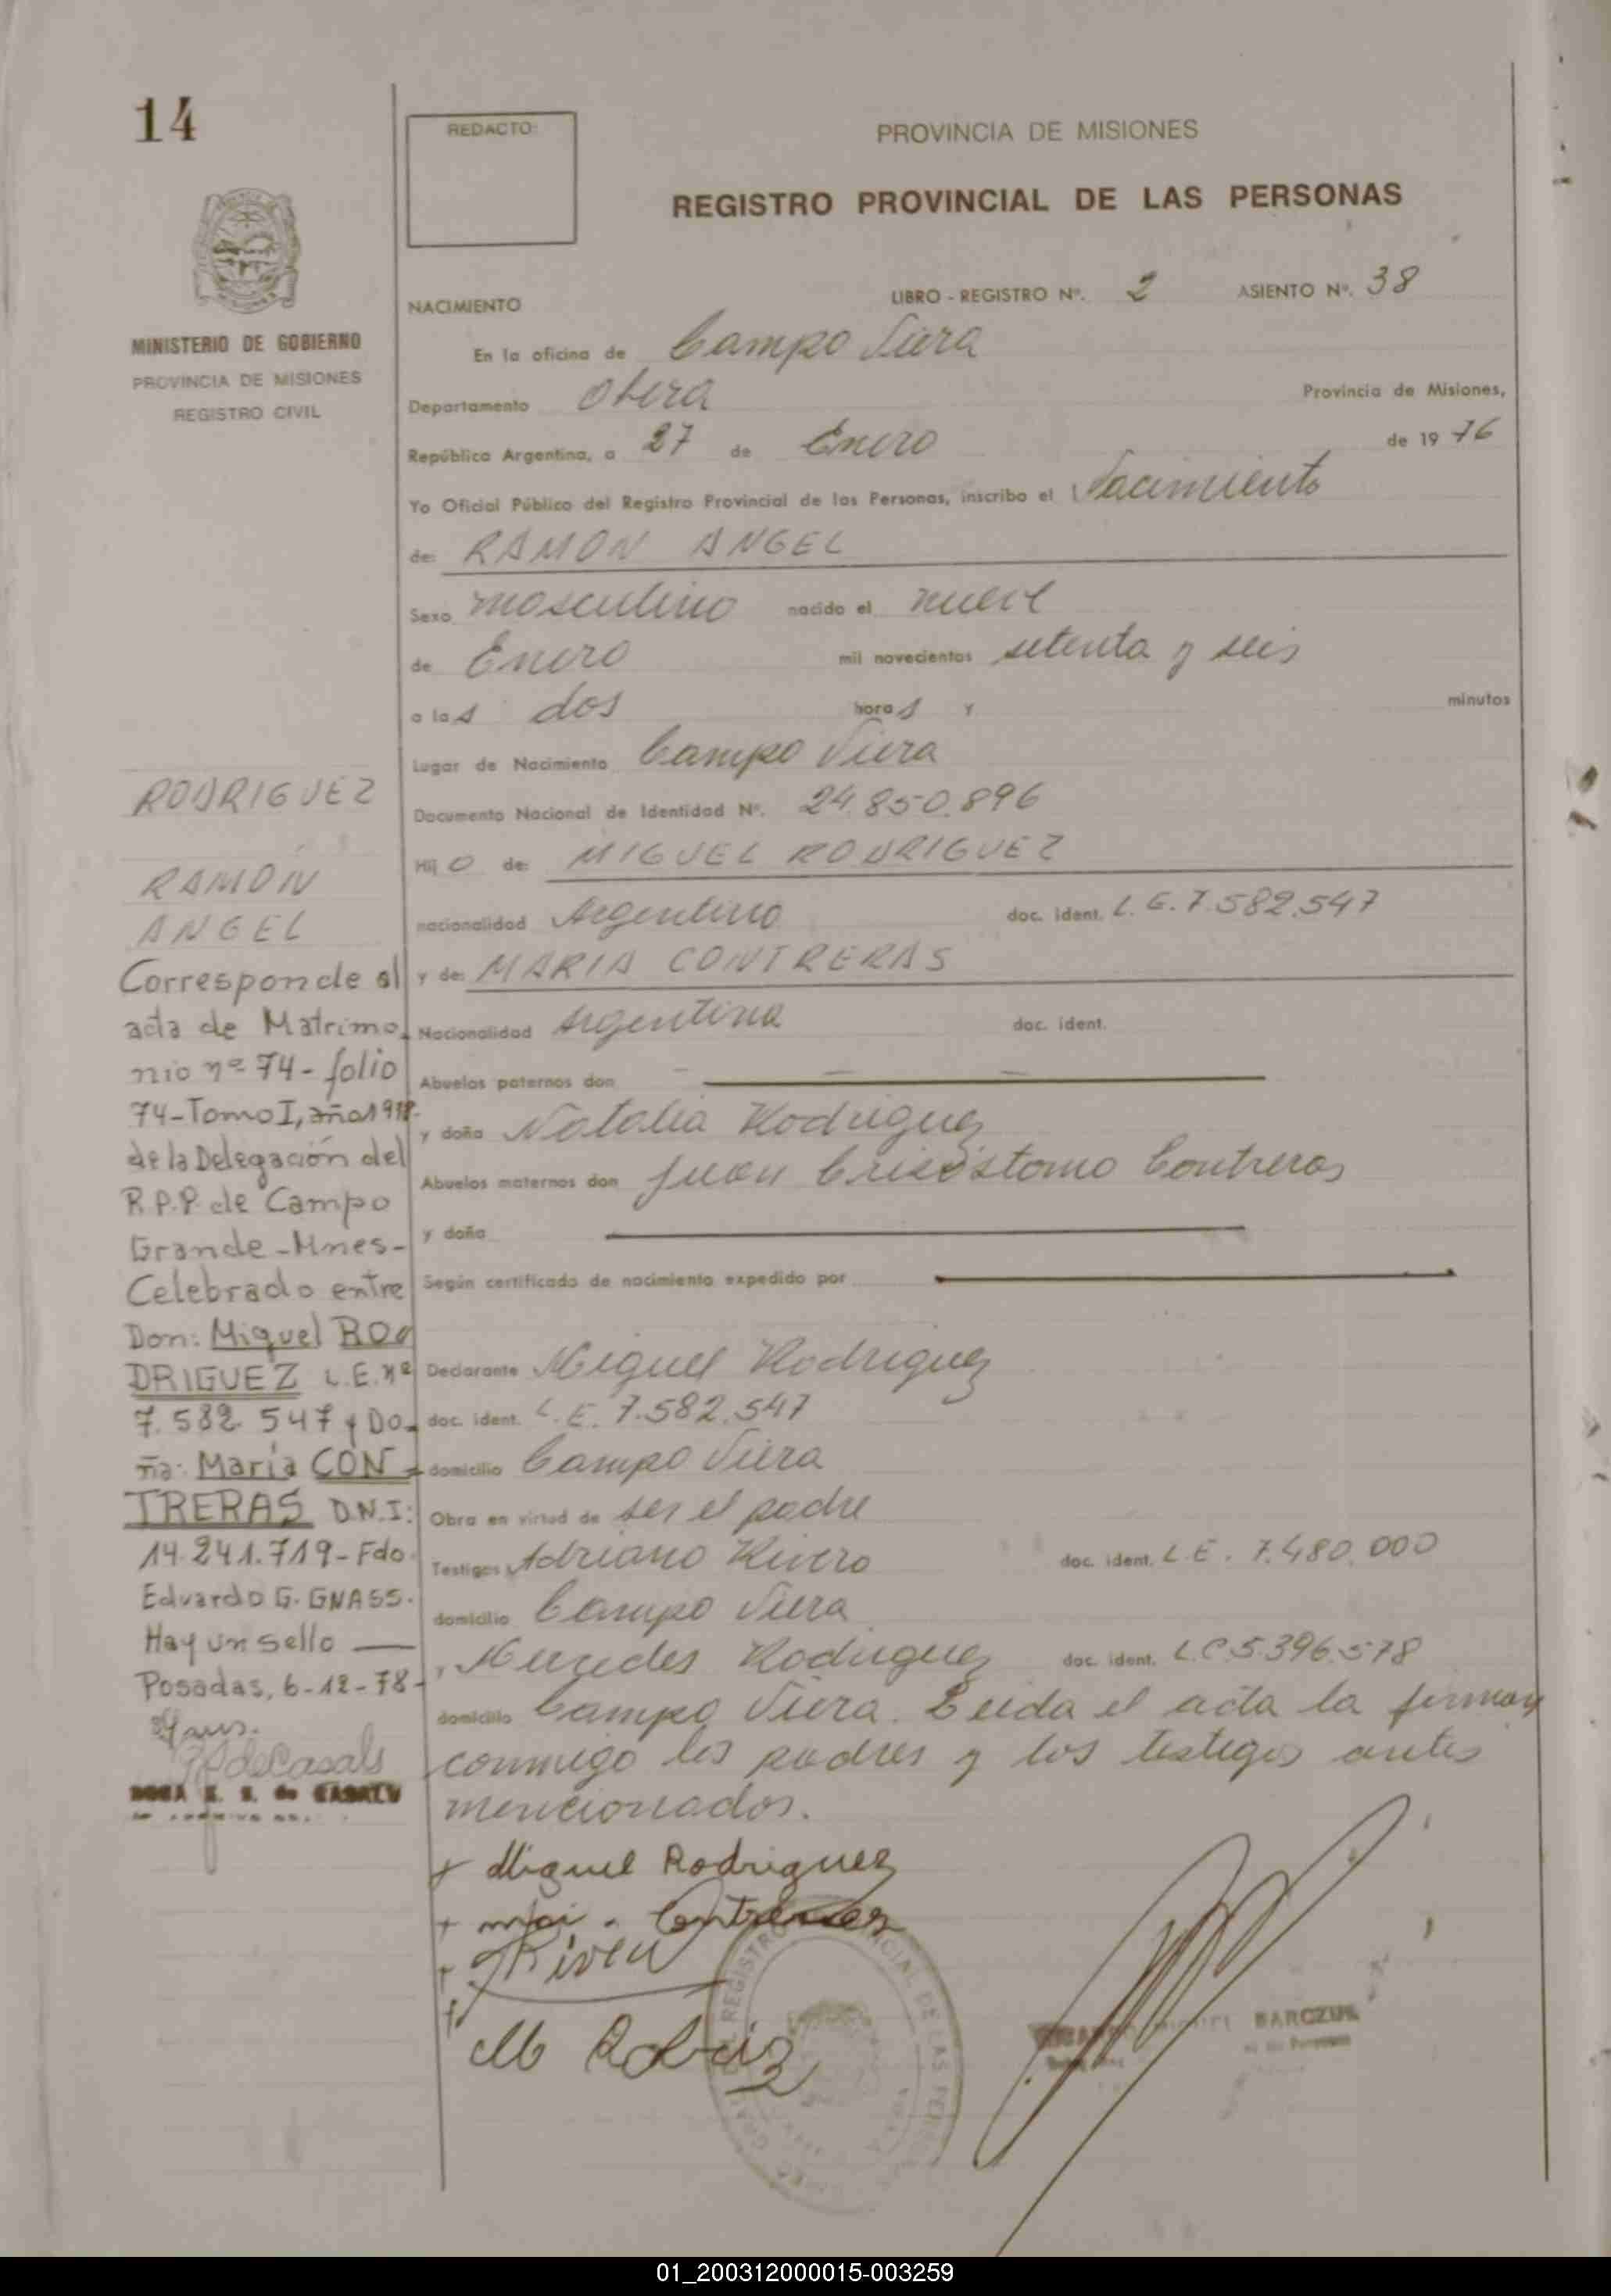 14
REDACTO:
PROVINCIA DE MISIONES
REGISTRO PROVINCIAL DE LAS PERSONAS
MINISTERIO DE GOBIERNO
PROVINCIA DE MISIONES
REGISTRO CIVIL
NACIMIENTO
LIBRO - REGISTRO Nº. 2 ASIENTO Nº. 38
En la oficina de Campo Viera
Departamento Obera Provincia de Misiones,
República Argentina, a 27 de Enero de 1976
Yo Oficial Público del Registro Provincial de las Personas, inscribo el Nacimiento
de: RAMON ANGEL
Sexo masculino nacido el nueve
de Enero mil novecientos setenta y seis
a las dos horas y minutos
Lugar de Nacimiento Campo Viera
Documento Nacional de Identidad Nº. 24.850.896
Hijo de: MIGUEL RODRIGUEZ
nacionalidad Argentino doc. ident. L.E. 7.582.547
y de: MARIA CONTRERAS
Nacionalidad Argentina doc. ident.
Abuelos paternos don
y doña Natalia Rodriguez
Abuelos maternos don Juan Crisóstomo Contreras
y doña
Según certificado de nacimiento expedido por
Declarante Miguel Rodriguez
doc. ident. L.E. 7.582.547
domicilio Campo Viera
Obra en virtud de ser el padre
Testigos Adriano Rivero doc. ident. L.E. 7.480.000
domicilio Campo Viera
, Mercedes Rodriguez doc. ident. L.C 5.396.578
domicilio Campo Viera. Leida el acta la firman
conmigo los padres y los testigos antes
mencionados.
+ Miguel Rodriguez
+ Contreras
+
+
RODRIGUEZ
RAMÓN
ANGEL
Corresponde al
acta de Matrimo-
nio nº 74 - folio
74 - Tomo I, año 1978.
de la Delegación del
R.P.P. de Campo
Grande - Mnes -
Celebrado entre
Don: Miguel RO
DRIGUEZ L.E. nº
7.582.547 y Do-
ña: María CON=
TRERAS D.N.I:
14.241.719 - Fdo.
Eduardo G. GNASS.
Hay un sello —
Posadas, 6-12-78-
de Casals
de CASALS
REGISTRO PROVINCIAL DE LAS
MIGUEL BARCZUK
01_200312000015-003259